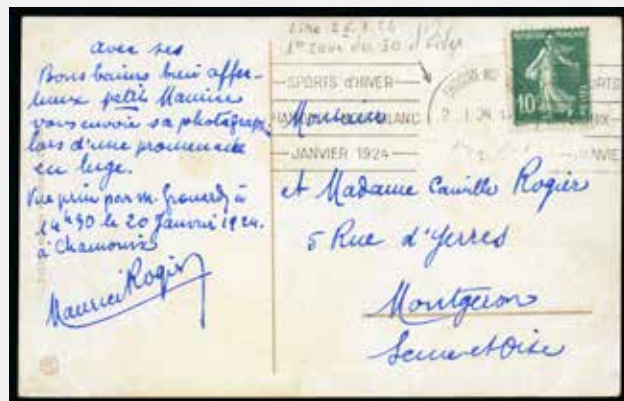 avec ses
Bons baisers bien affec-
tueux petit Maurice
vous envoie sa photographie
lors d'une promenade
en luge.
Vue prise par m.
14h30 le 20 Janvier 1924.
à Chamonix
Maurice Rogier
1er jour des JO d'hiver
SPORTS d'HIVER
BLANC
JANVIER 1924
REPUBLIQUE FRANÇAISE
10
Monsieur
et Madame Camille Rogier
5 Rue d'Yerres
Montgeron
Seine et Oise